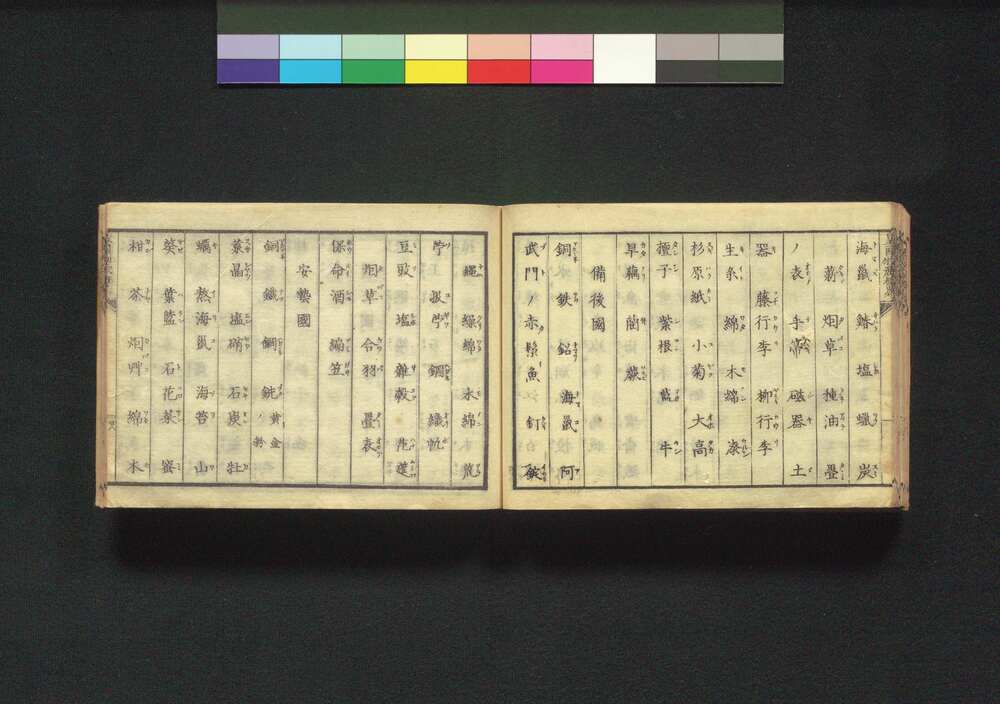 海鼠 鰆 塩 蠟 炭
蒟 烟草 種油 疊
ノ表 手帚 磁器 土
器 藤行李 柳行李
生糸 綿 木綿 漆
杉原紙 小菊 大高
檀子 紫根 藍 牛
旱藕 藺 蕨
備後國
銅 鉄 鉛 海鼠 阿
武門ノ赤鬃魚 釘 鍼
繩 繰綿 木綿 荒
苧 扱苧 鋼 織帆
豆豉 塩 雜穀 花蓮
烟草 合羽 疊表
保命酒 編笠
安藝國
銅 鐵 鋼 銑 黄金 鈴
菉 晶 塩硝 石炭 牡
蠣 熬海鼠 海苔 山
葵 葉藍 石花菜 蜜
柑 茶 烟艸 綿 木